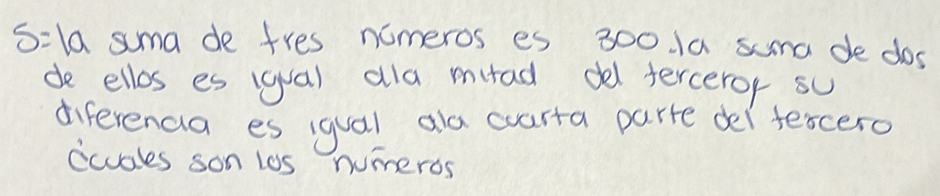 S=la suma de tres números es 300. la suma de dos
de ellos es igual ala mitad del tercero y su
diferencia es igual ala cuarta parte del tercero
cuales son los numeros